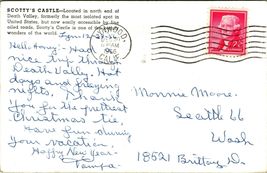 SCOTTY'S CASTLE—Located in north end of
Death Valley, formerly the most isolated spot in
United States, but now easily accessible by
roads. Scotty's Castle is one of the
wonders of the
Hello, Had a
nice trip thru
Death Valley. Hot
days and freezing
nights. Thank
you for the prettiest
Christmas tie,
Have fun during
your vacation.
Happy New Year.
CALIF.
2¢
Monnie Moore.
Seattle 66
Wash
18521